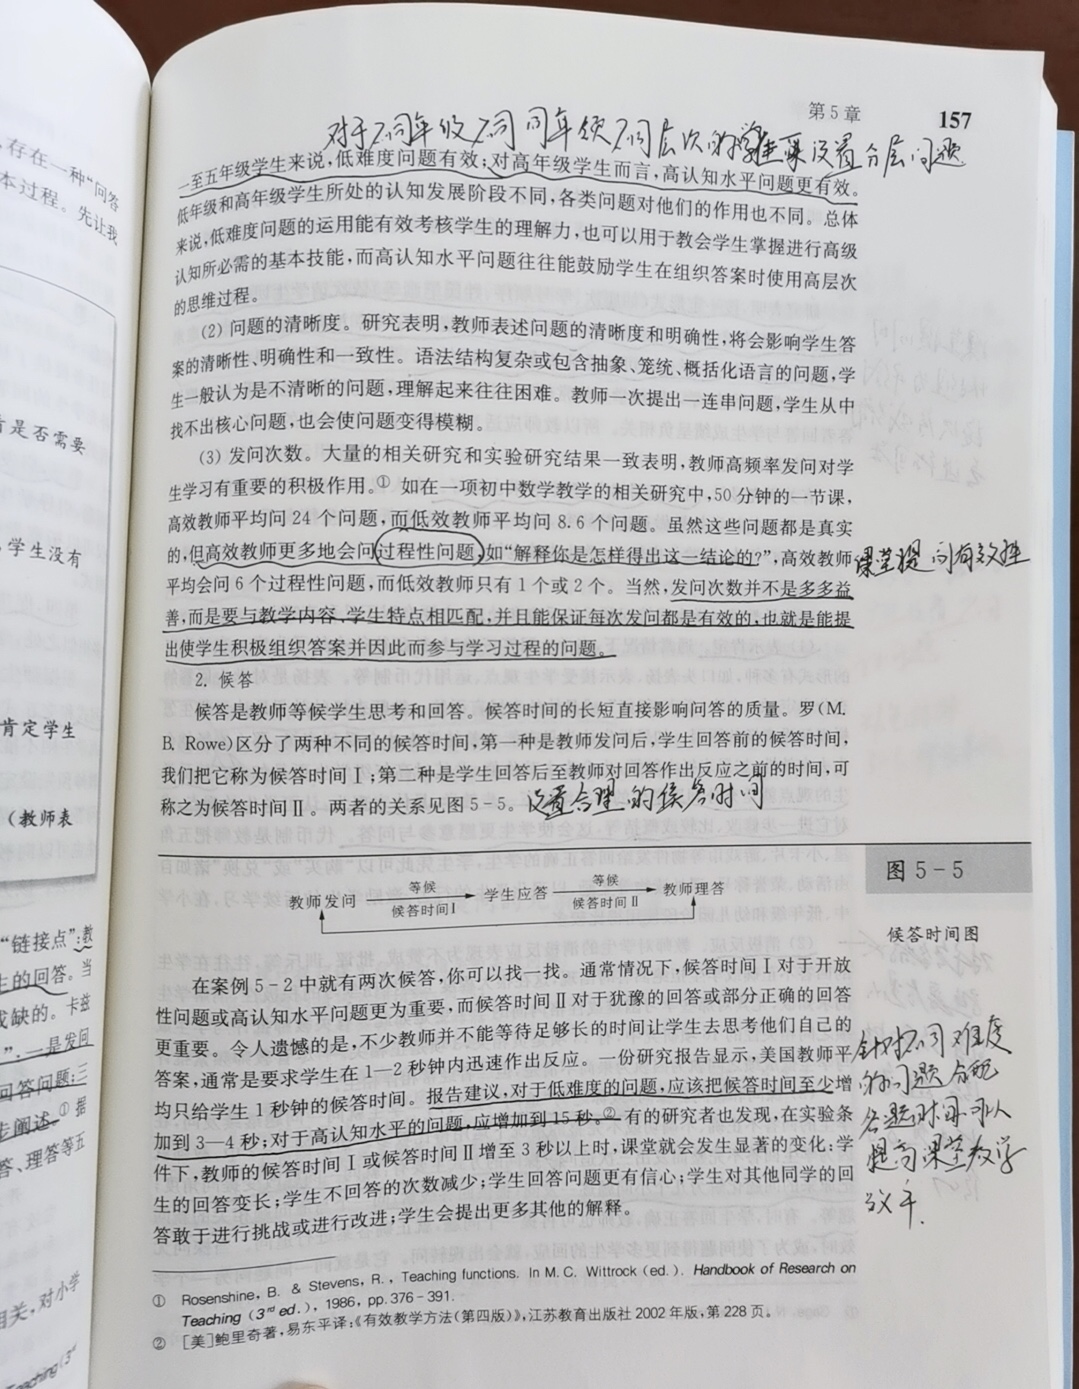 存在一种“问答
本过程。先让我
是否需要
学生没有
肯定学生
（教师表
“链接点”：教
生的回答。当
或缺的。卡兹
”，一是发问
回答问题；三
步阐述。①据
答、理答等五
相关，对小学
第5章
157
对于不同年级不同年龄不同层次的学生要设置分层问题
一至五年级学生来说，低难度问题有效；对高年级学生而言，高认知水平问题更有效。
低年级和高年级学生所处的认知发展阶段不同，各类问题对他们的作用也不同。总体
来说，低难度问题的运用能有效考核学生的理解力，也可以用于教会学生掌握进行高级
认知所必需的基本技能，而高认知水平问题往往能鼓励学生在组织答案时使用高层次
的思维过程。
（2）问题的清晰度。研究表明，教师表述问题的清晰度和明确性，将会影响学生答
案的清晰性、明确性和一致性。语法结构复杂或包含抽象、笼统、概括化语言的问题，学
生一般认为是不清晰的问题，理解起来往往困难。教师一次提出一连串问题，学生从中
找不出核心问题，也会使问题变得模糊。
（3）发问次数。大量的相关研究和实验研究结果一致表明，教师高频率发问对学
生学习有重要的积极作用。① 如在一项初中数学教学的相关研究中，50分钟的一节课，
高效教师平均问24个问题，而低效教师平均问8.6个问题。虽然这些问题都是真实
的，但高效教师更多地会问过程性问题，如“解释你是怎样得出这一结论的？”，高效教师
课堂提问有效性
平均会问6个过程性问题，而低效教师只有1个或2个。当然，发问次数并不是多多益
善，而是要与教学内容、学生特点相匹配，并且能保证每次发问都是有效的，也就是能提
出使学生积极组织答案并因此而参与学习过程的问题。
2. 候答
候答是教师等候学生思考和回答。候答时间的长短直接影响问答的质量。罗（M.
B. Rowe）区分了两种不同的候答时间，第一种是教师发问后，学生回答前的候答时间，
我们把它称为候答时间Ⅰ；第二种是学生回答后至教师对回答作出反应之前的时间，可
称之为候答时间Ⅱ。两者的关系见图5-5。
设置合理的候答时间
图5-5
候答时间图
教师发问 等候 候答时间Ⅰ 学生应答 等候 候答时间Ⅱ 教师理答
在案例5-2中就有两次候答，你可以找一找。通常情况下，候答时间Ⅰ对于开放
性问题或高认知水平问题更为重要，而候答时间Ⅱ对于犹豫的回答或部分正确的回答
更重要。令人遗憾的是，不少教师并不能等待足够长的时间让学生去思考他们自己的
答案，通常是要求学生在1—2秒钟内迅速作出反应。一份研究报告显示，美国教师平
均只给学生1秒钟的候答时间。报告建议，对于低难度的问题，应该把候答时间至少增
加到3—4秒；对于高认知水平的问题，应增加到15秒。② 有的研究者也发现，在实验条
件下，教师的候答时间Ⅰ或候答时间Ⅱ增至3秒以上时，课堂就会发生显著的变化：学
生的回答变长；学生不回答的次数减少；学生回答问题更有信心；学生对其他同学的回
答敢于进行挑战或进行改进；学生会提出更多其他的解释。
针对不同难度
的问题分配
答题时间可以
提高课堂教学
效率.
① Rosenshine, B. & Stevens, R., Teaching functions. In M.C. Wittrock (ed.). Handbook of Research on
Teaching (3rd ed.), 1986, pp.376-391.
② [美]鲍里奇著，易东平译：《有效教学方法（第四版）》，江苏教育出版社2002年版，第228页。